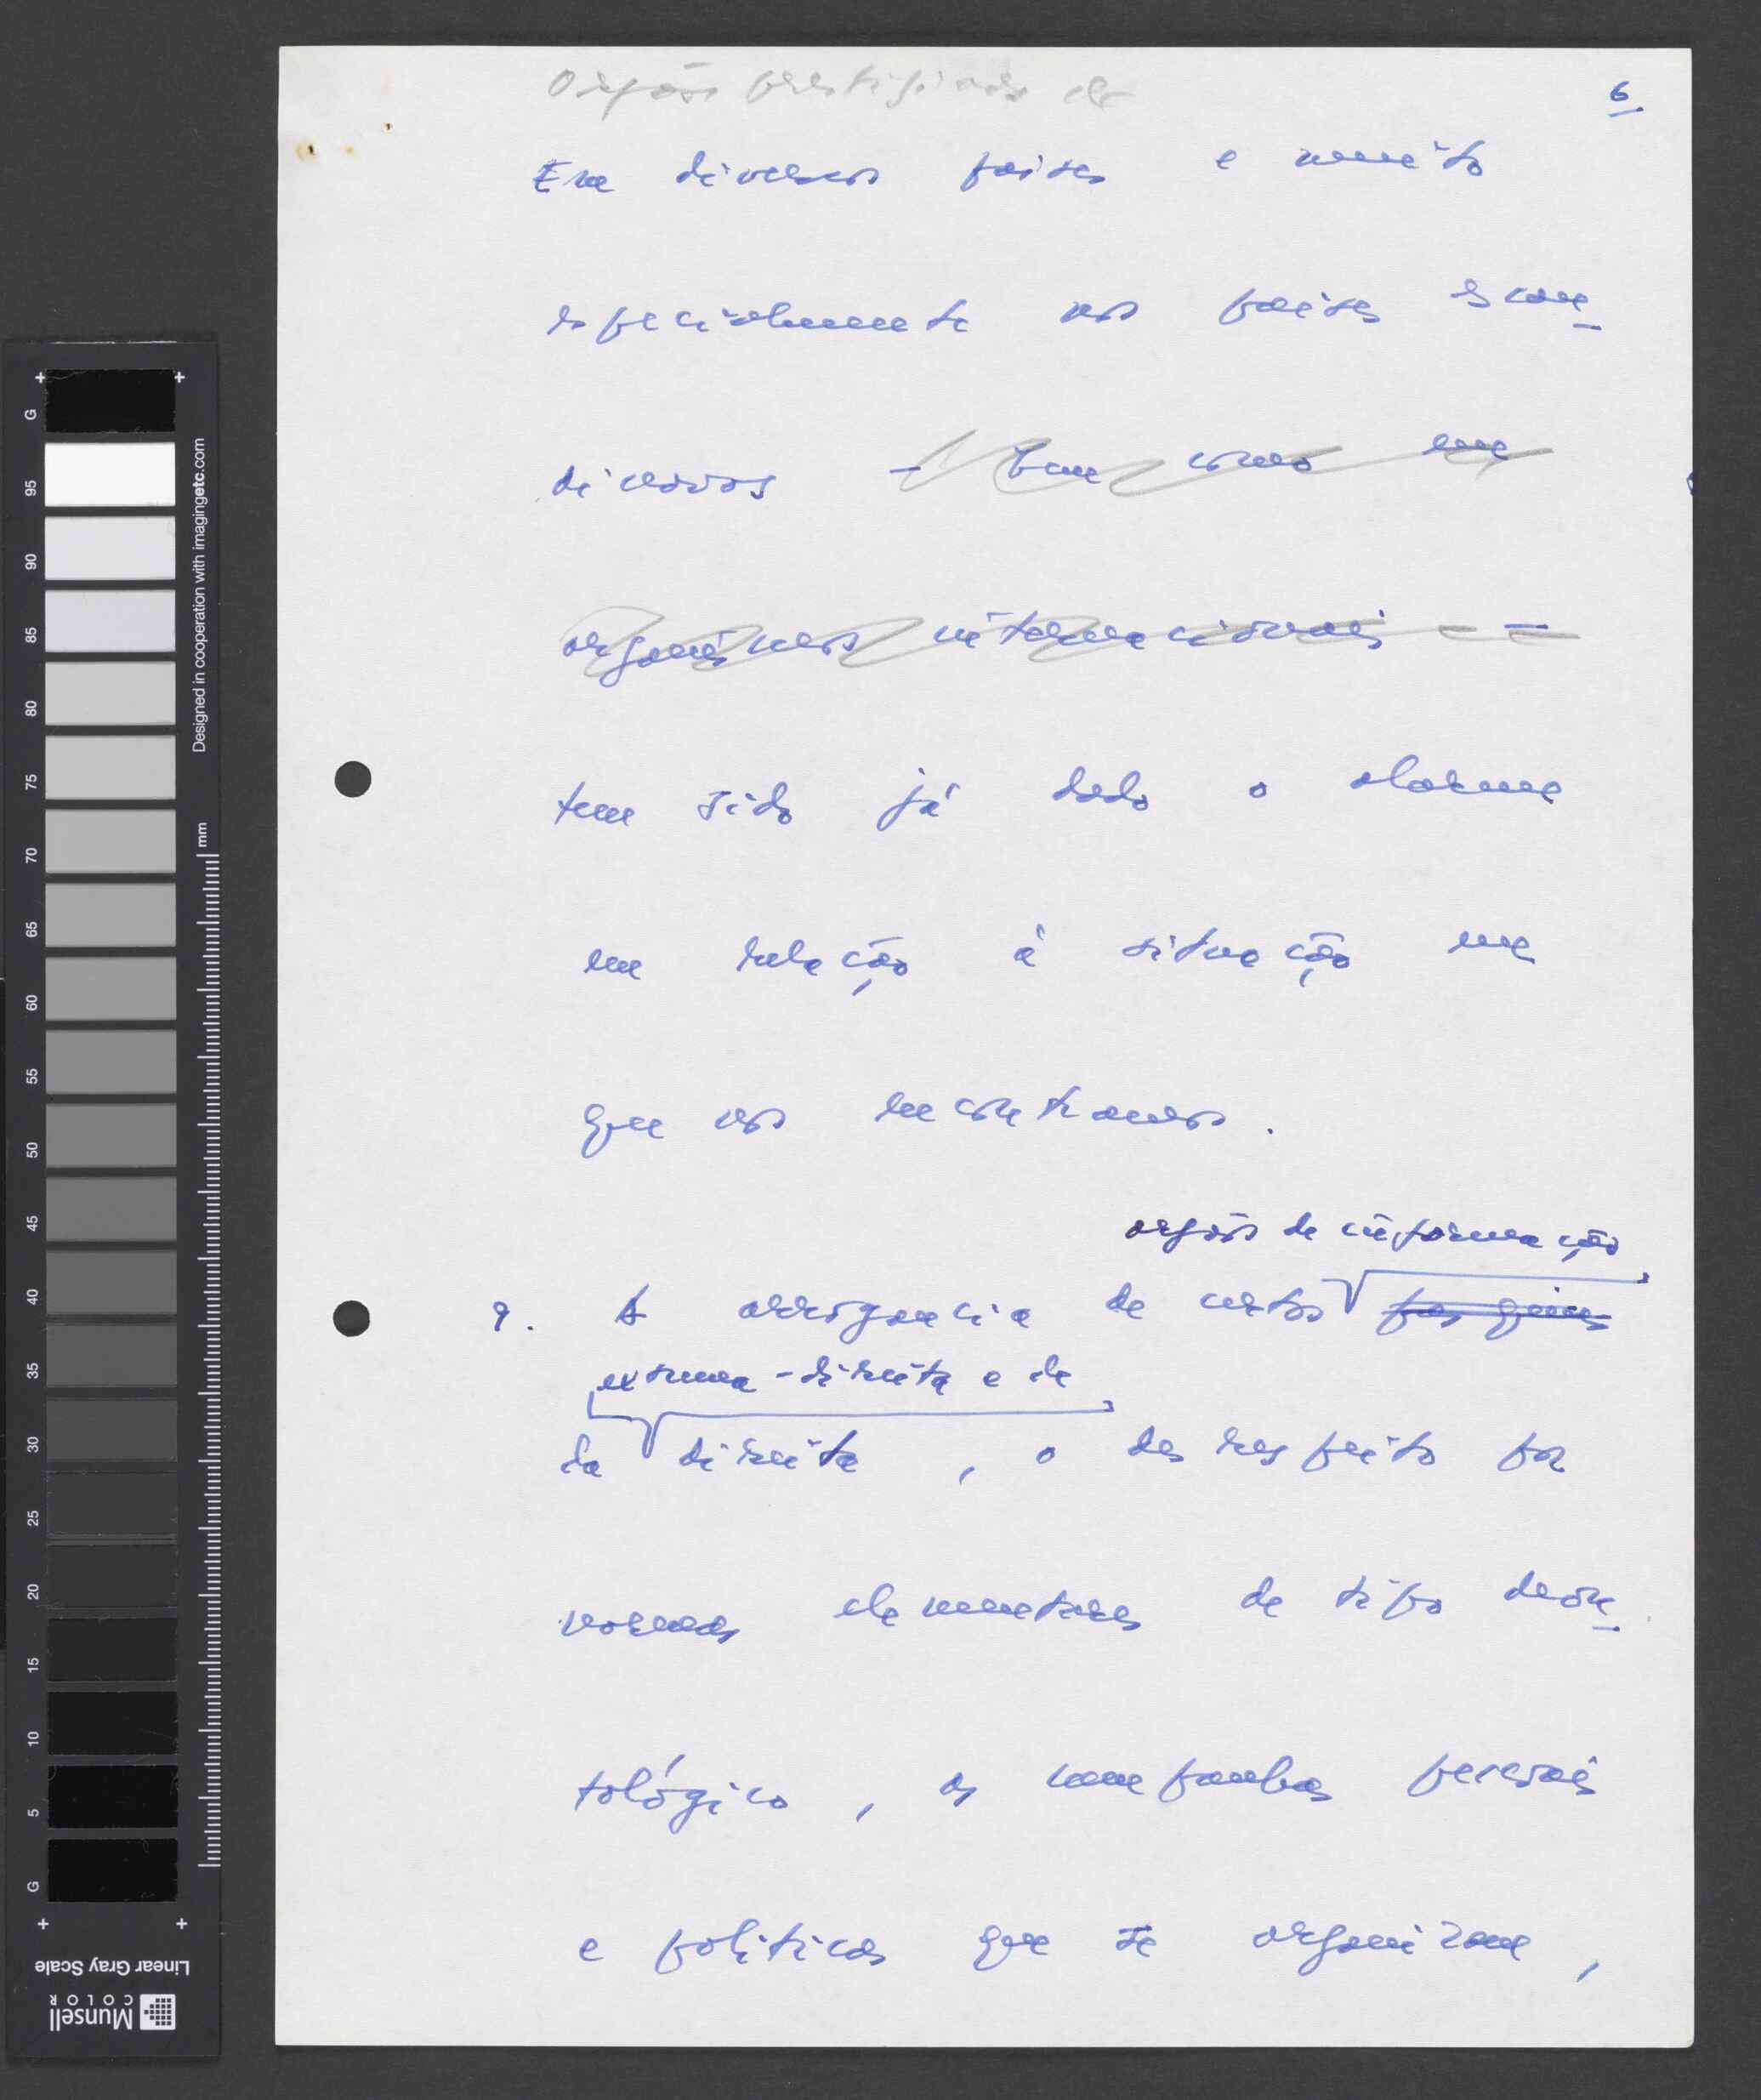 Orgãos prestigiados de
6.
Em diversos países e muito
especialmente nos países escan
dinavos - bem como em
organismos internacionais -
tem sido já dado o alarme
em relação à situação em
que nos encontramos.
orgãos de informação
9. A arrogancia de certos pasquins
extrema-direita e de
da direita, o desrespeito por
normas elementares de tipo deon
tológico, as campanhas pessoais
e politicas que se organizam,
G
95
90
85
80
75
70
65
60
55
50
45
40
35
30
25
20
15
10
5
G
mm
Designed in cooperation with imagingetc.com
Linear Gray Scale
Munsell
COLOR